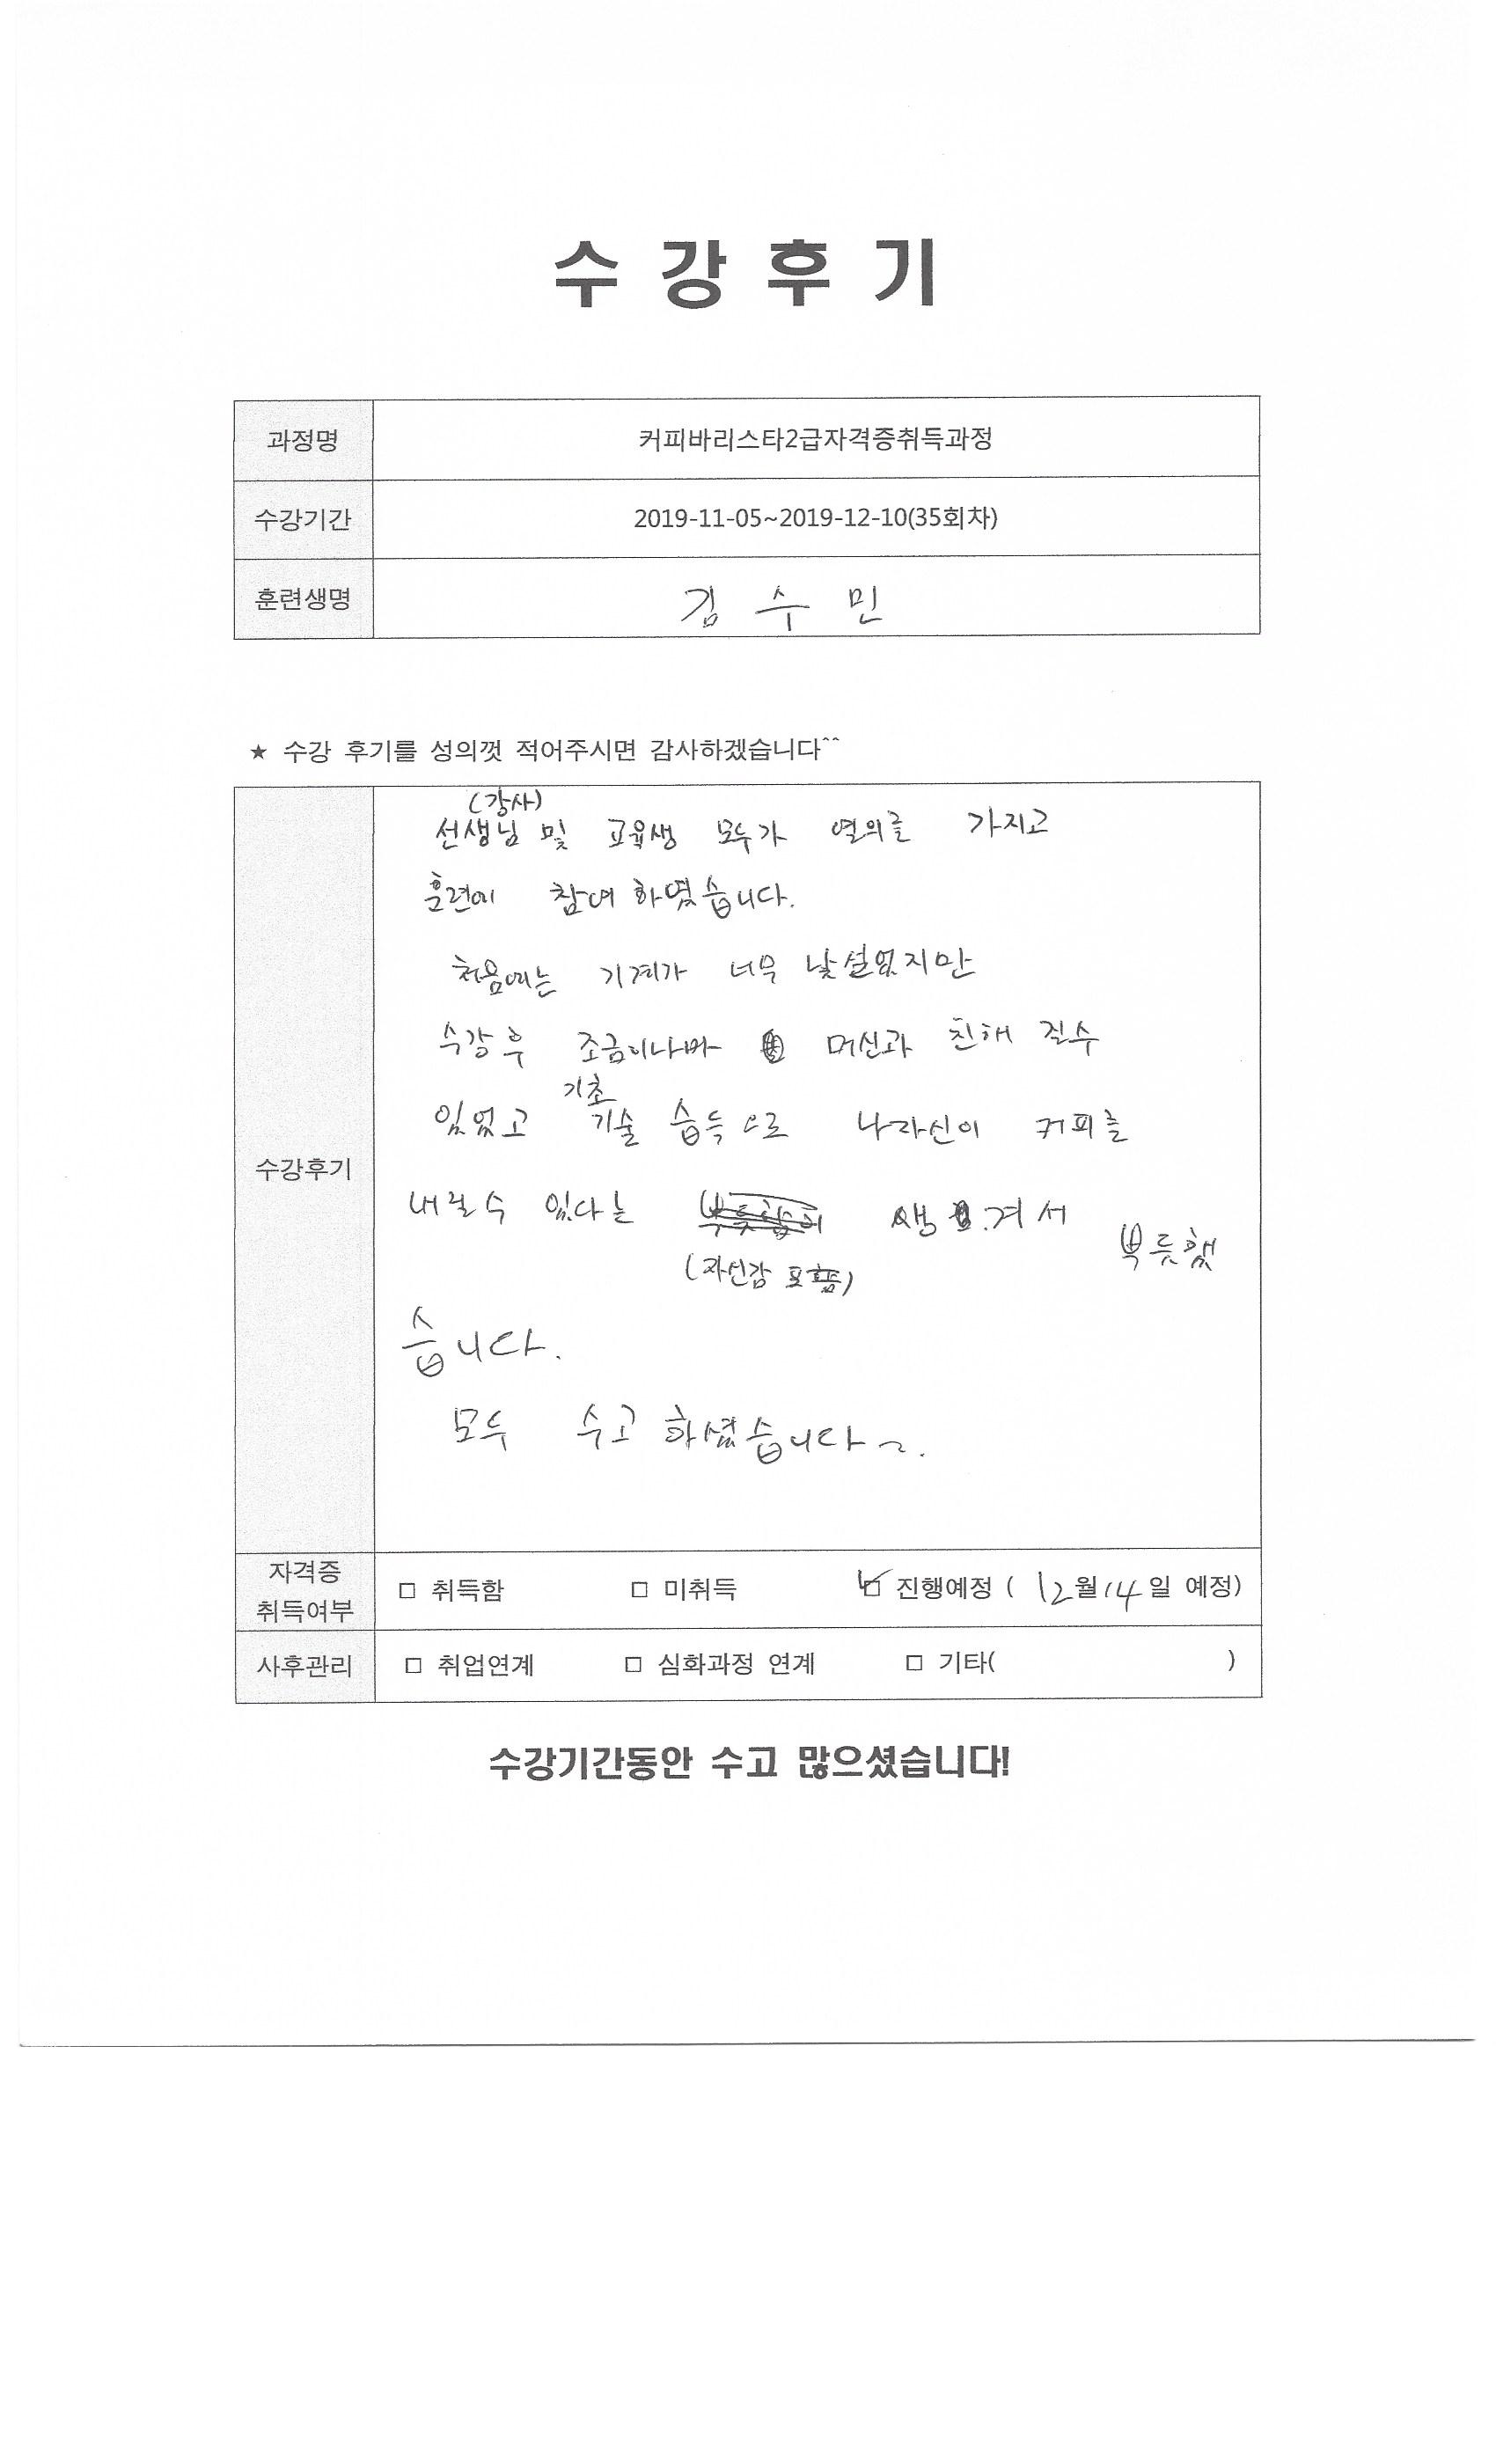 수 강 후 기
과정명 커피바리스타2급자격증취득과정
수강기간 2019-11-05~2019-12-10(35회차)
훈련생명 김 수 민
★ 수강 후기를 성의껏 적어주시면 감사하겠습니다^^
수강후기
(강사)
선생님 및 교육생 모두가 열의를 가지고
훈련에 참여 하였습니다.
처음에는 기계가 너무 낯설었지만
수강 후 조금이나마 머신과 친해 질수
있었고 기초 기술 습득으로 나자신이 커피를
내릴 수 있다는 생겨서 부듯했
(자신감 포함)
습니다.
모두 수고 하셨습니다~.
자격증 취득여부 □ 취득함 □ 미취득 ☑ 진행예정 ( 12월 14일 예정)
사후관리 □ 취업연계 □ 심화과정 연계 □ 기타( )
수강기간동안 수고 많으셨습니다!